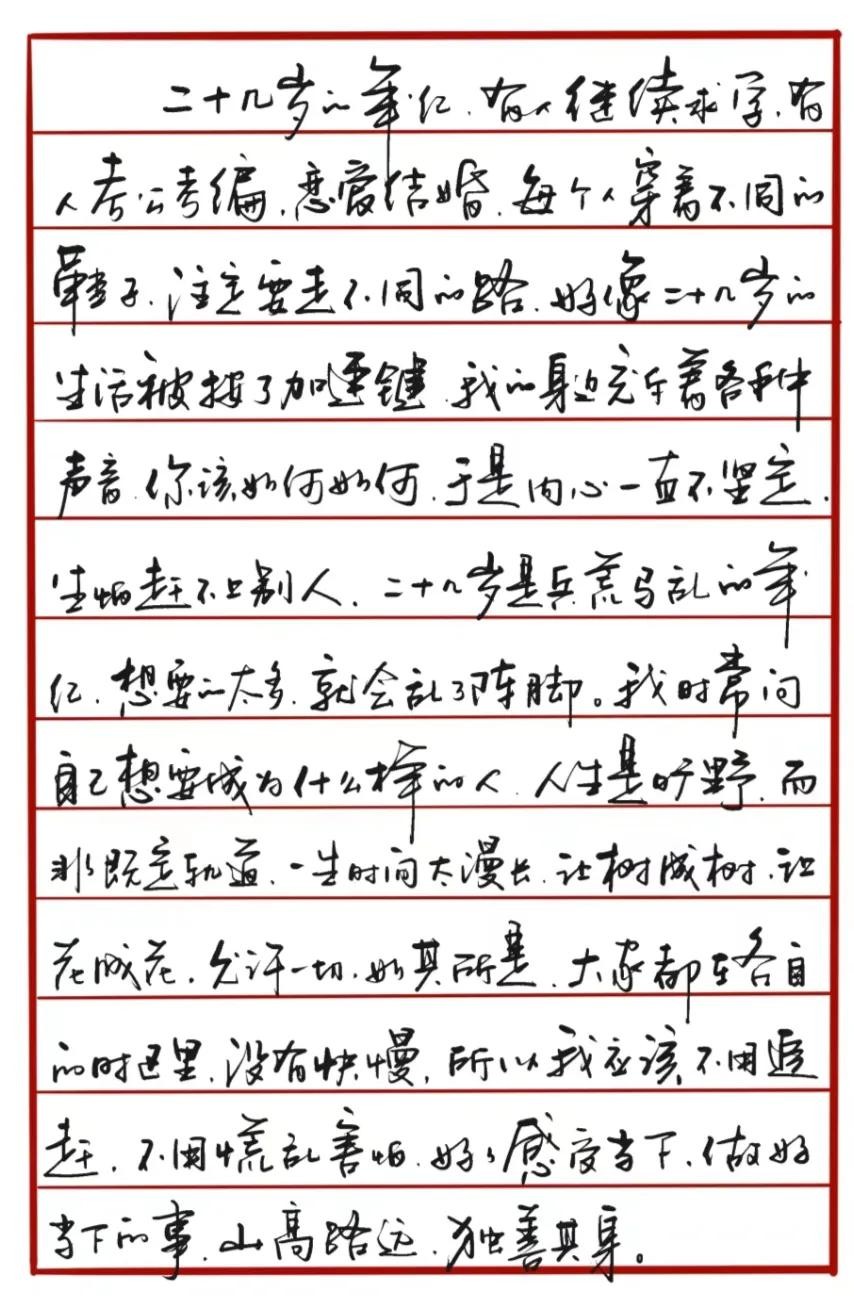 二十几岁的年纪，有人继续求学，有
人考公考编，恋爱结婚，每个人穿着不同的
鞋子，注定要走不同的路，好像二十几岁的
生活被按了加速键，我的身边充斥着各种
声音，你该如何如何，于是内心一直不坚定，
生怕赶不上别人，二十几岁是兵荒马乱的年
纪，想要的太多，就会乱了阵脚。我时常问
自己想要成为什么样的人，人生是旷野，而
非既定轨道，一生时间太漫长，让树成树，让
花成花，允许一切，如其所是，大家都在各自
的时区里，没有快慢，所以我应该不用追
赶，不用慌乱害怕，好好感受当下，做好
当下的事，山高路远，独善其身。